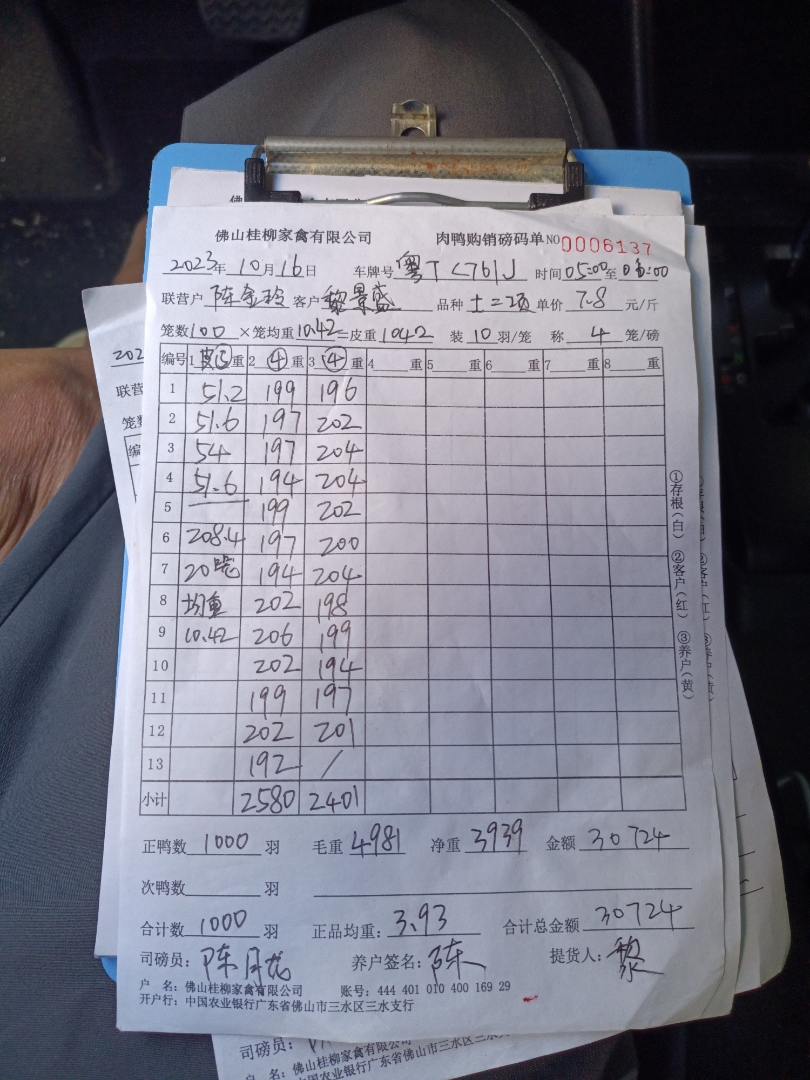 佛山桂柳家禽有限公司 肉鸭购销磅码单 NO 0006137
2023年10月16日 车牌号 粤T 时间 05:00至06:00
联营户 陈金玲 客户 黎景盛 品种 土二项 单价 7.8 元/斤
笼数100 ×笼均重10.42=皮重1042 装10羽/笼 称4笼/磅
编号 1皮⑤重 2④重 3④重 4 重 5 重 6 重 7 重 8 重
1 51.2 199 196
2 51.6 197 202
3 54 197 204
4 51.6 194 204
5 199 202
6 208.4 197 200
7 20笼 194 204
8 均重 202 198
9 10.42 206 199
10 202 194
11 199 197
12 202 201
13 192 /
小计 2580 2401
①存根(白) ②客户(红) ③养户(黄)
正鸭数 1000 羽 毛重 4981 净重 3939 金额 30724
次鸭数 羽
合计数 1000 羽 正品均重: 3.93 合计总金额 30724
司磅员: 陈月 养户签名: 陈 提货人: 黎
户 名: 佛山桂柳家禽有限公司 账号: 444 401 010 400 169 29
开户行: 中国农业银行广东省佛山市三水区三水支行
司磅员:
户 名: 佛山桂柳家禽有限公司
中国农业银行广东省佛山市三水区三